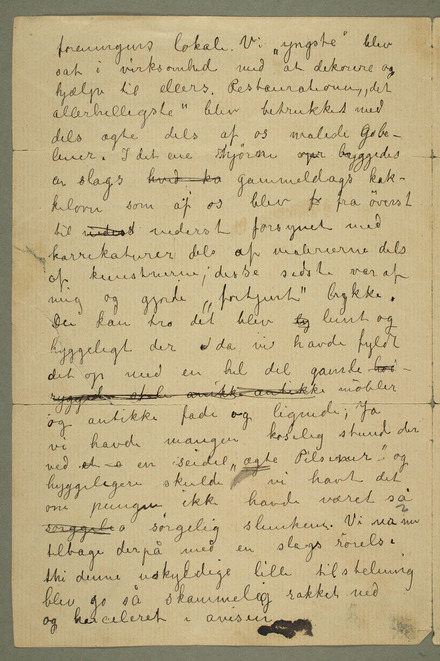 foreningens lokale. Vi „yngste“ blev
sat i virksomhed med at dekorere og
hjælpe til ellers. Restaurationen „det
allerhelligste“ blev betrukket med
dels ægte dels af os malede Gobe-
liner. I det ene hjörne opr byggedes
en slags hvid ka gammeldags kak-
kelovn som af os blev fra överst
til nedest nederst forsynet med
karrikaturer dels af malerierne dels
af kunstnerne; disse sidste var af
mig og gjorde „fortjent“ lykke.
De kan tro det blev lunt og
hyggeligt der da vi havde fyldt
det op med en hel del gamle
antikke möbler
og antikke fade og lignende; Ja
vi havde mangen koselig stund der
ved en seidel „ægte Pilsener“ og
hyggeligere skulde vi havt det
om pungen ikke havde været så
sörgelig slunken. Vi
tilbage derpå med en slags
thi denne uskyldige lille tilstelning
blev jo så skammelig rakket ned
og i avisen